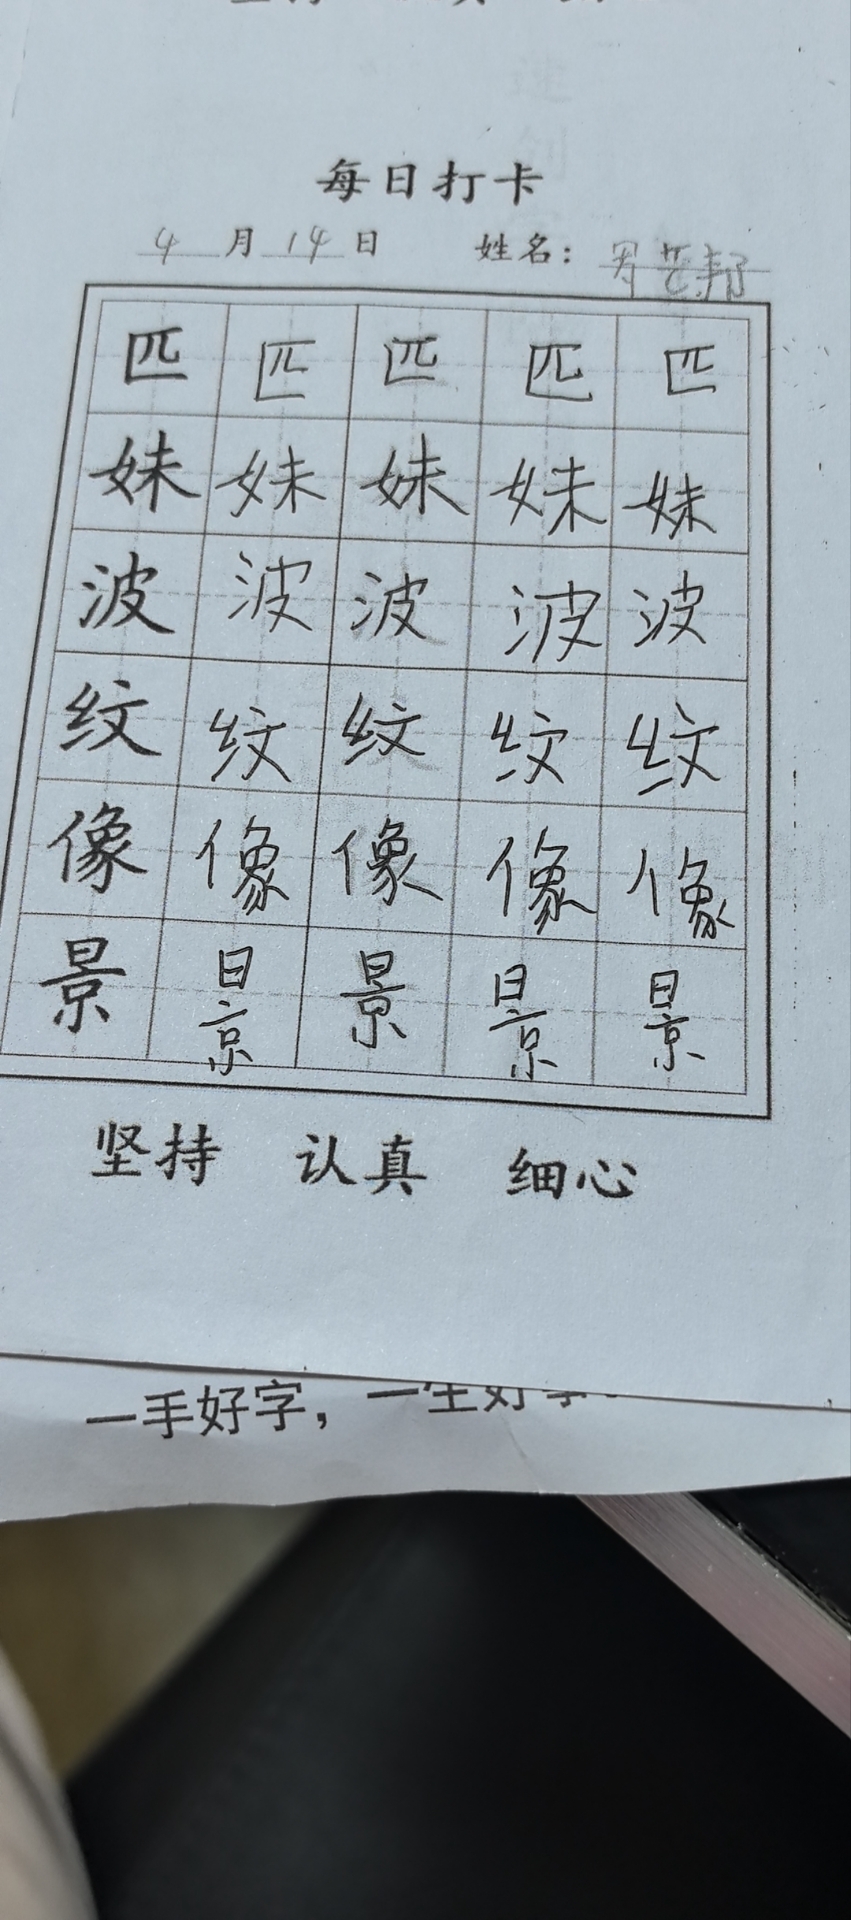 每日打卡
4月14日 姓名：
匹匹匹匹匹
妹妹妹妹妹
波波波波波
纹纹纹纹纹
像像像像像
景景景景景
坚持 认真 细心
一手好字，一生好